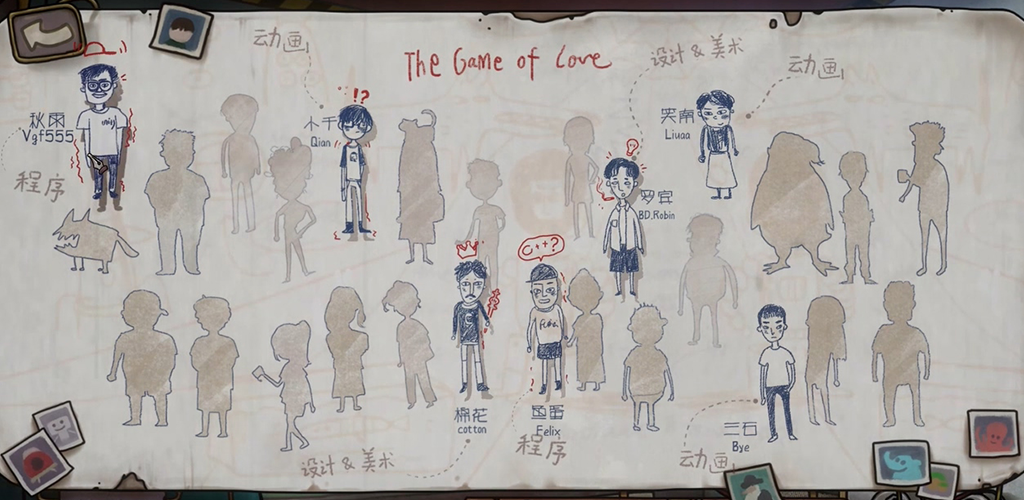 动画
The Game of Love
设计 & 美术
动画
秋雨
Vgf555
程序
!?
小千
Qian
笑南
Liuaa
罗宾
BD.Robin
C++?
棉花
cotton
Felix
程序
设计 & 美术
三石
Bye
动画